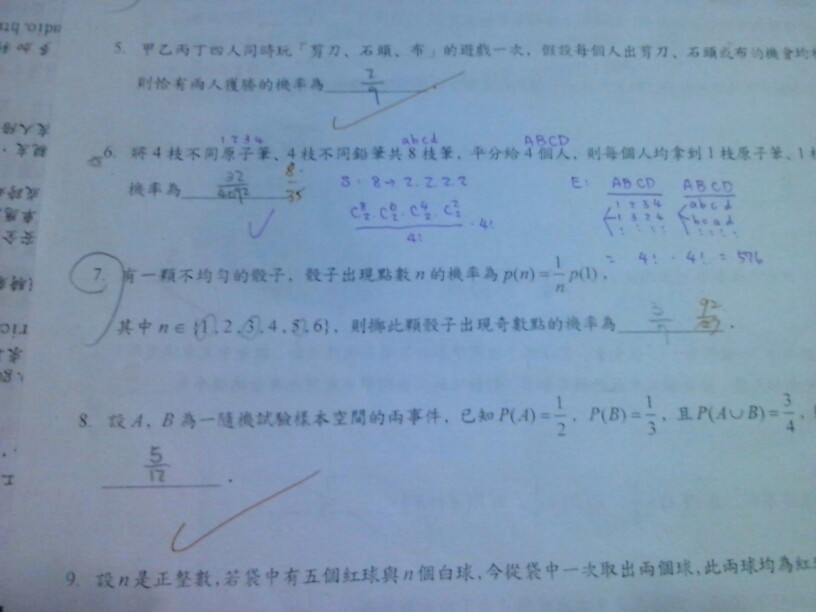 5. 甲乙丙丁四人同時玩「剪刀、石頭、布」的遊戲一次，假設每個人出剪刀、石頭或布的機會均
則恰有兩人獲勝的機率為 2/9 .
1 2 3 4 a b c d A B C D
6. 將 4 枝不同原子筆、4 枝不同鉛筆共 8 枝筆，平分給 4 個人，則每個人均拿到 1 枝原子筆、1
機率為 8/35
S: 8→2.2.2.2
C⁸₂·C⁶₂·C⁴₂·C²₂ / 4! · 4!
E: ABCD ABCD
1 2 3 4 a b c d
1 3 2 4 b c a d
= 4! · 4! = 576
7. 有一顆不均勻的骰子，骰子出現點數 n 的機率為 p(n) = 1/n p(1)，
其中 n ∈ {1, 2, 3, 4, 5, 6}，則擲此顆骰子出現奇數點的機率為 .
8. 設 A，B 為一隨機試驗樣本空間的兩事件，已知 P(A) = 1/2，P(B) = 1/3，且 P(A∪B) = 3/4，
5/12 .
9. 設 n 是正整數，若袋中有五個紅球與 n 個白球，今從袋中一次取出兩個球，此兩球均為紅